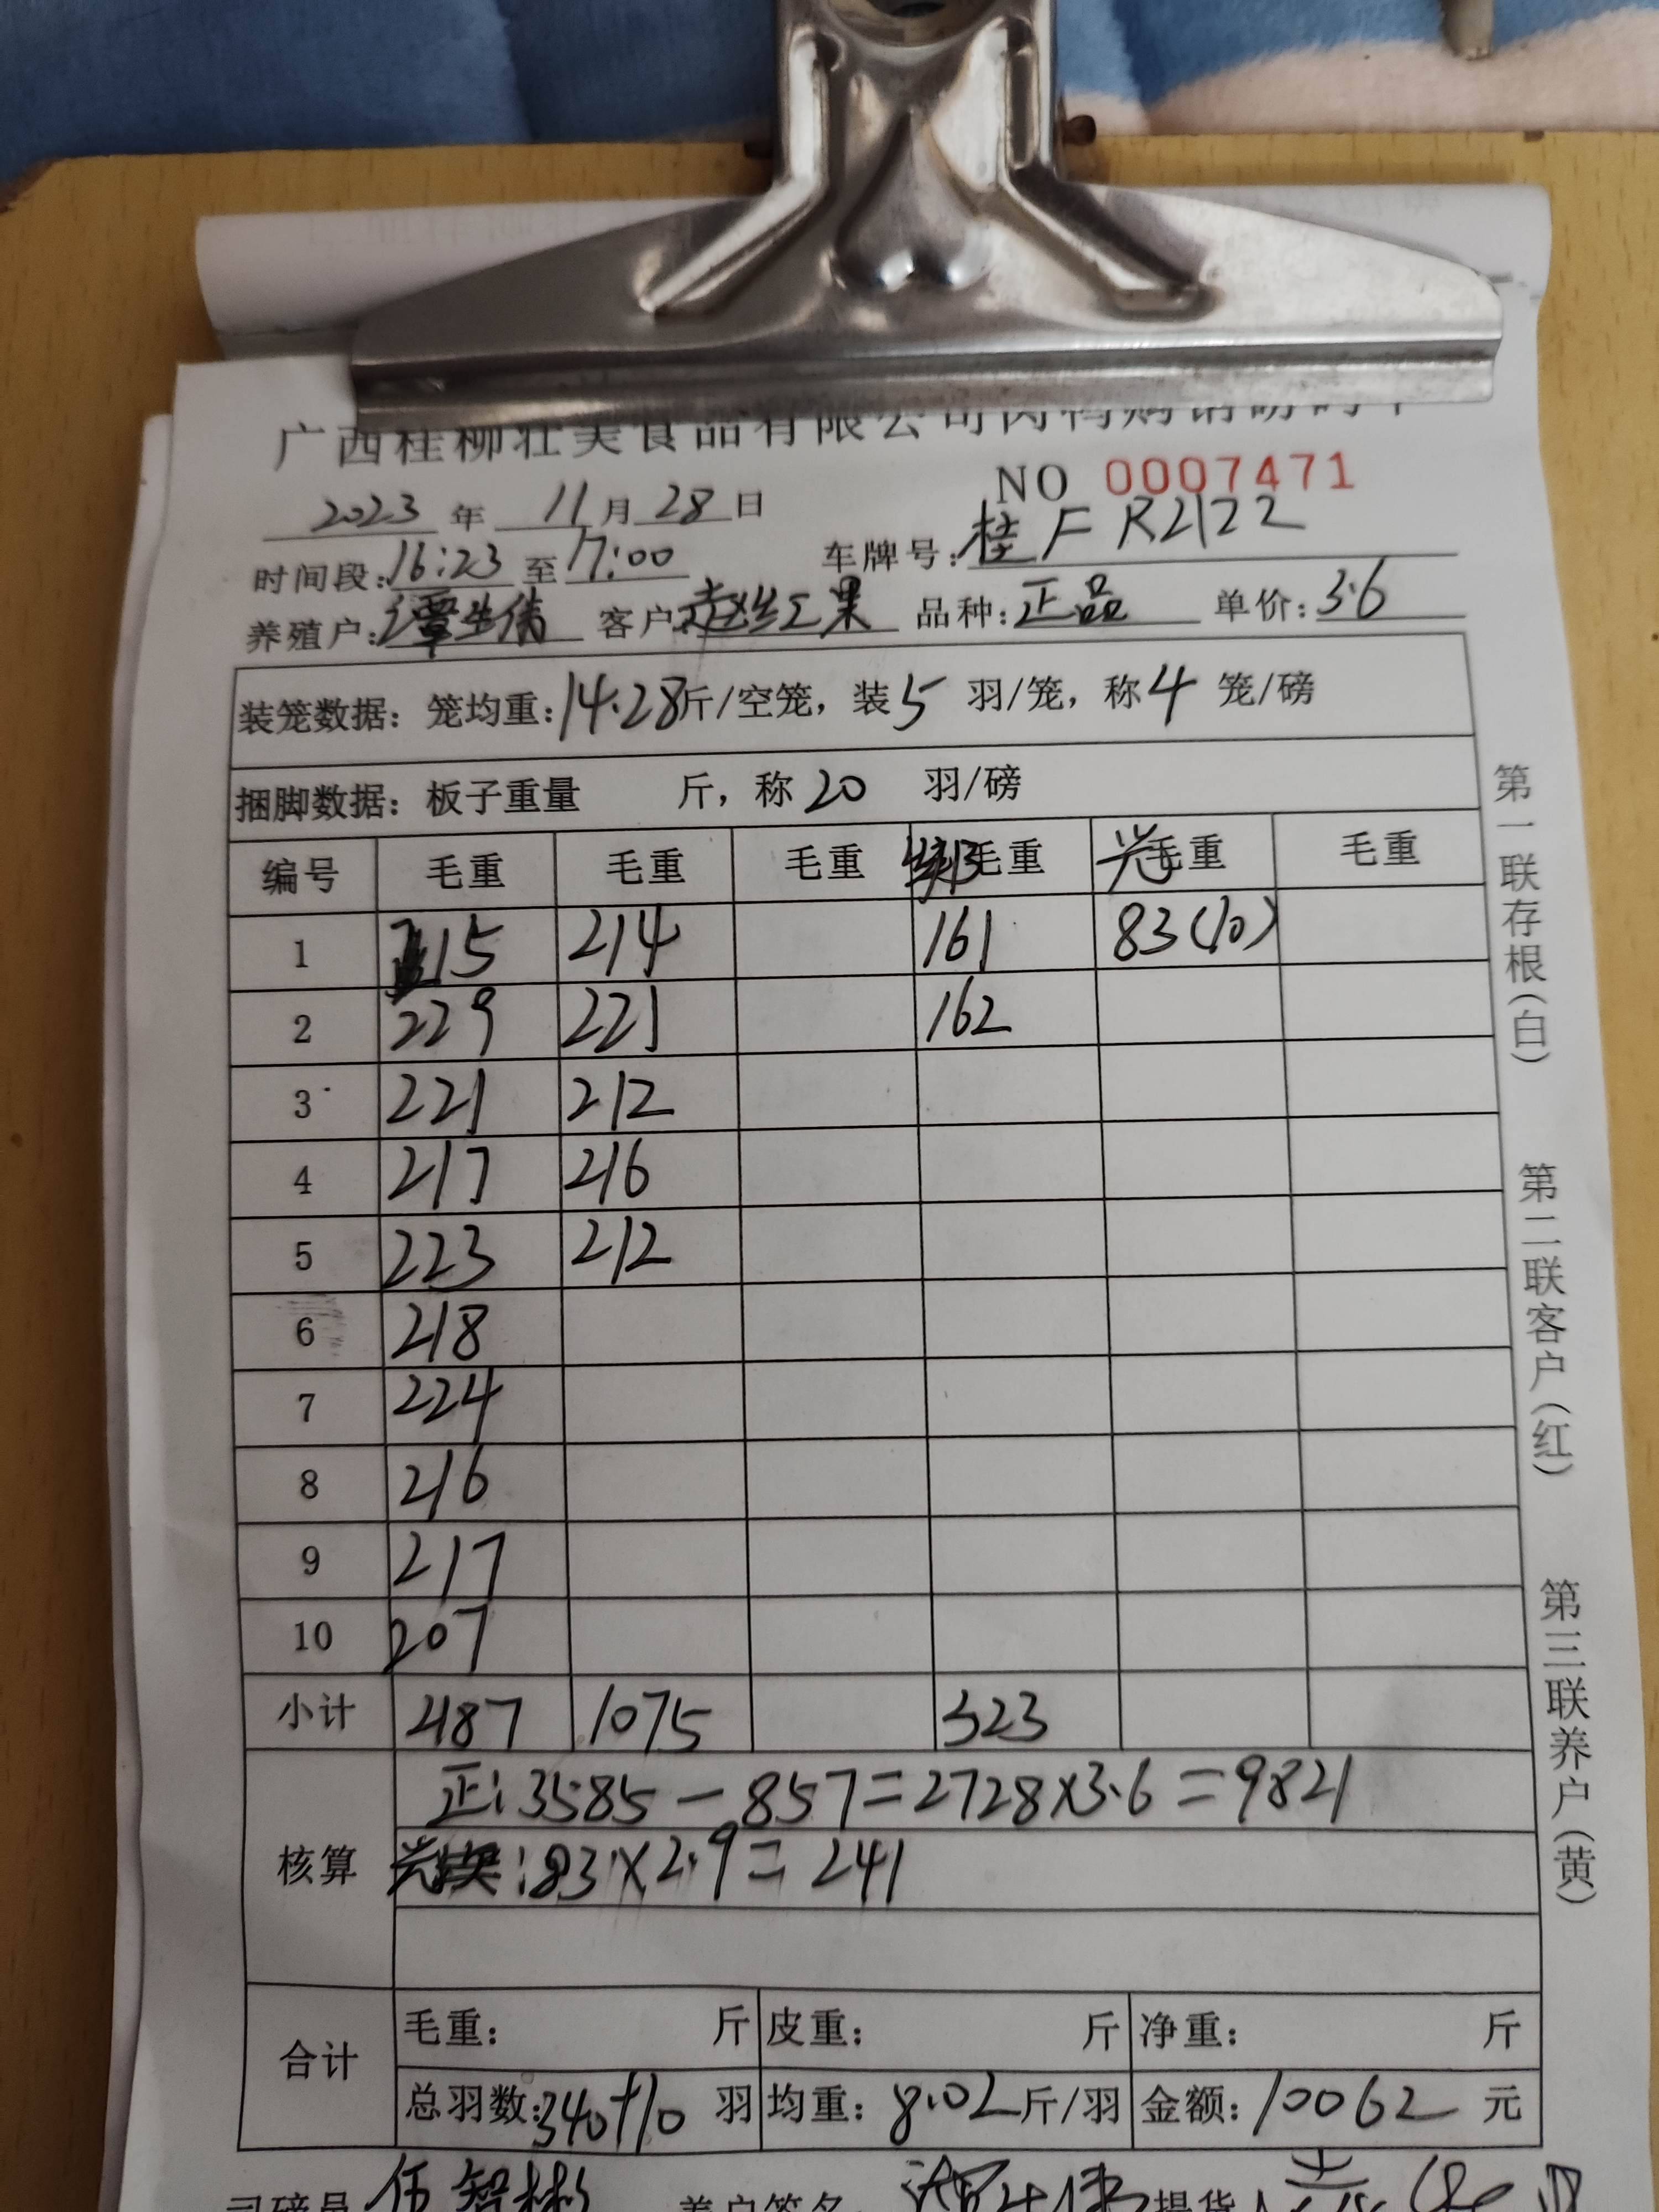 广西桂柳壮美食品有限公司肉鸭购销磅码单
NO 0007471
2023 年 11 月 28 日
时间段:16:23 至 17:00 车牌号:桂F R2122
养殖户:谭生伟 客户: 品种:正品 单价:3.6
装笼数据: 笼均重:14.28斤/空笼, 装5 羽/笼, 称4 笼/磅
捆脚数据: 板子重量 斤, 称20 羽/磅
编号 毛重 毛重 毛重 毛重 毛重 毛重
1 215 214 161 83(10)
2 229 221 162
3 221 212
4 217 216
5 223 212
6 218
7 224
8 216
9 217
10 207
小计 2187 1075 323
核算 正:3585-857=2728×3.6=9821
:83×2.9=241
合计 毛重: 斤 皮重: 斤 净重: 斤
总羽数:340+10 羽 均重:8.02斤/羽 金额:10062 元
司磅员 伍智彬 养户签名: 提货人
第一联存根(白) 第二联客户(红) 第三联养户(黄)